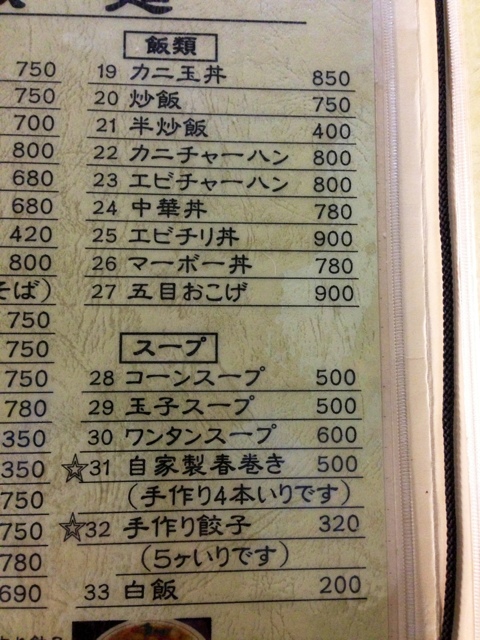 飯類
750
19 カニ玉丼 850
750
20 炒飯 750
700
21 半炒飯 400
800
22 カニチャーハン 800
680
23 エビチャーハン 800
680
24 中華丼 780
420
25 エビチリ丼 900
800
26 マーボー丼 780
そば)
27 五目おこげ 900
750
750
スープ
750
28 コーンスープ 500
780
29 玉子スープ 500
350
30 ワンタンスープ 600
350
☆31 自家製春巻き 500
750
(手作り4本いりです)
750
☆32 手作り餃子 320
780
(5ヶいりです)
690
33 白飯 200